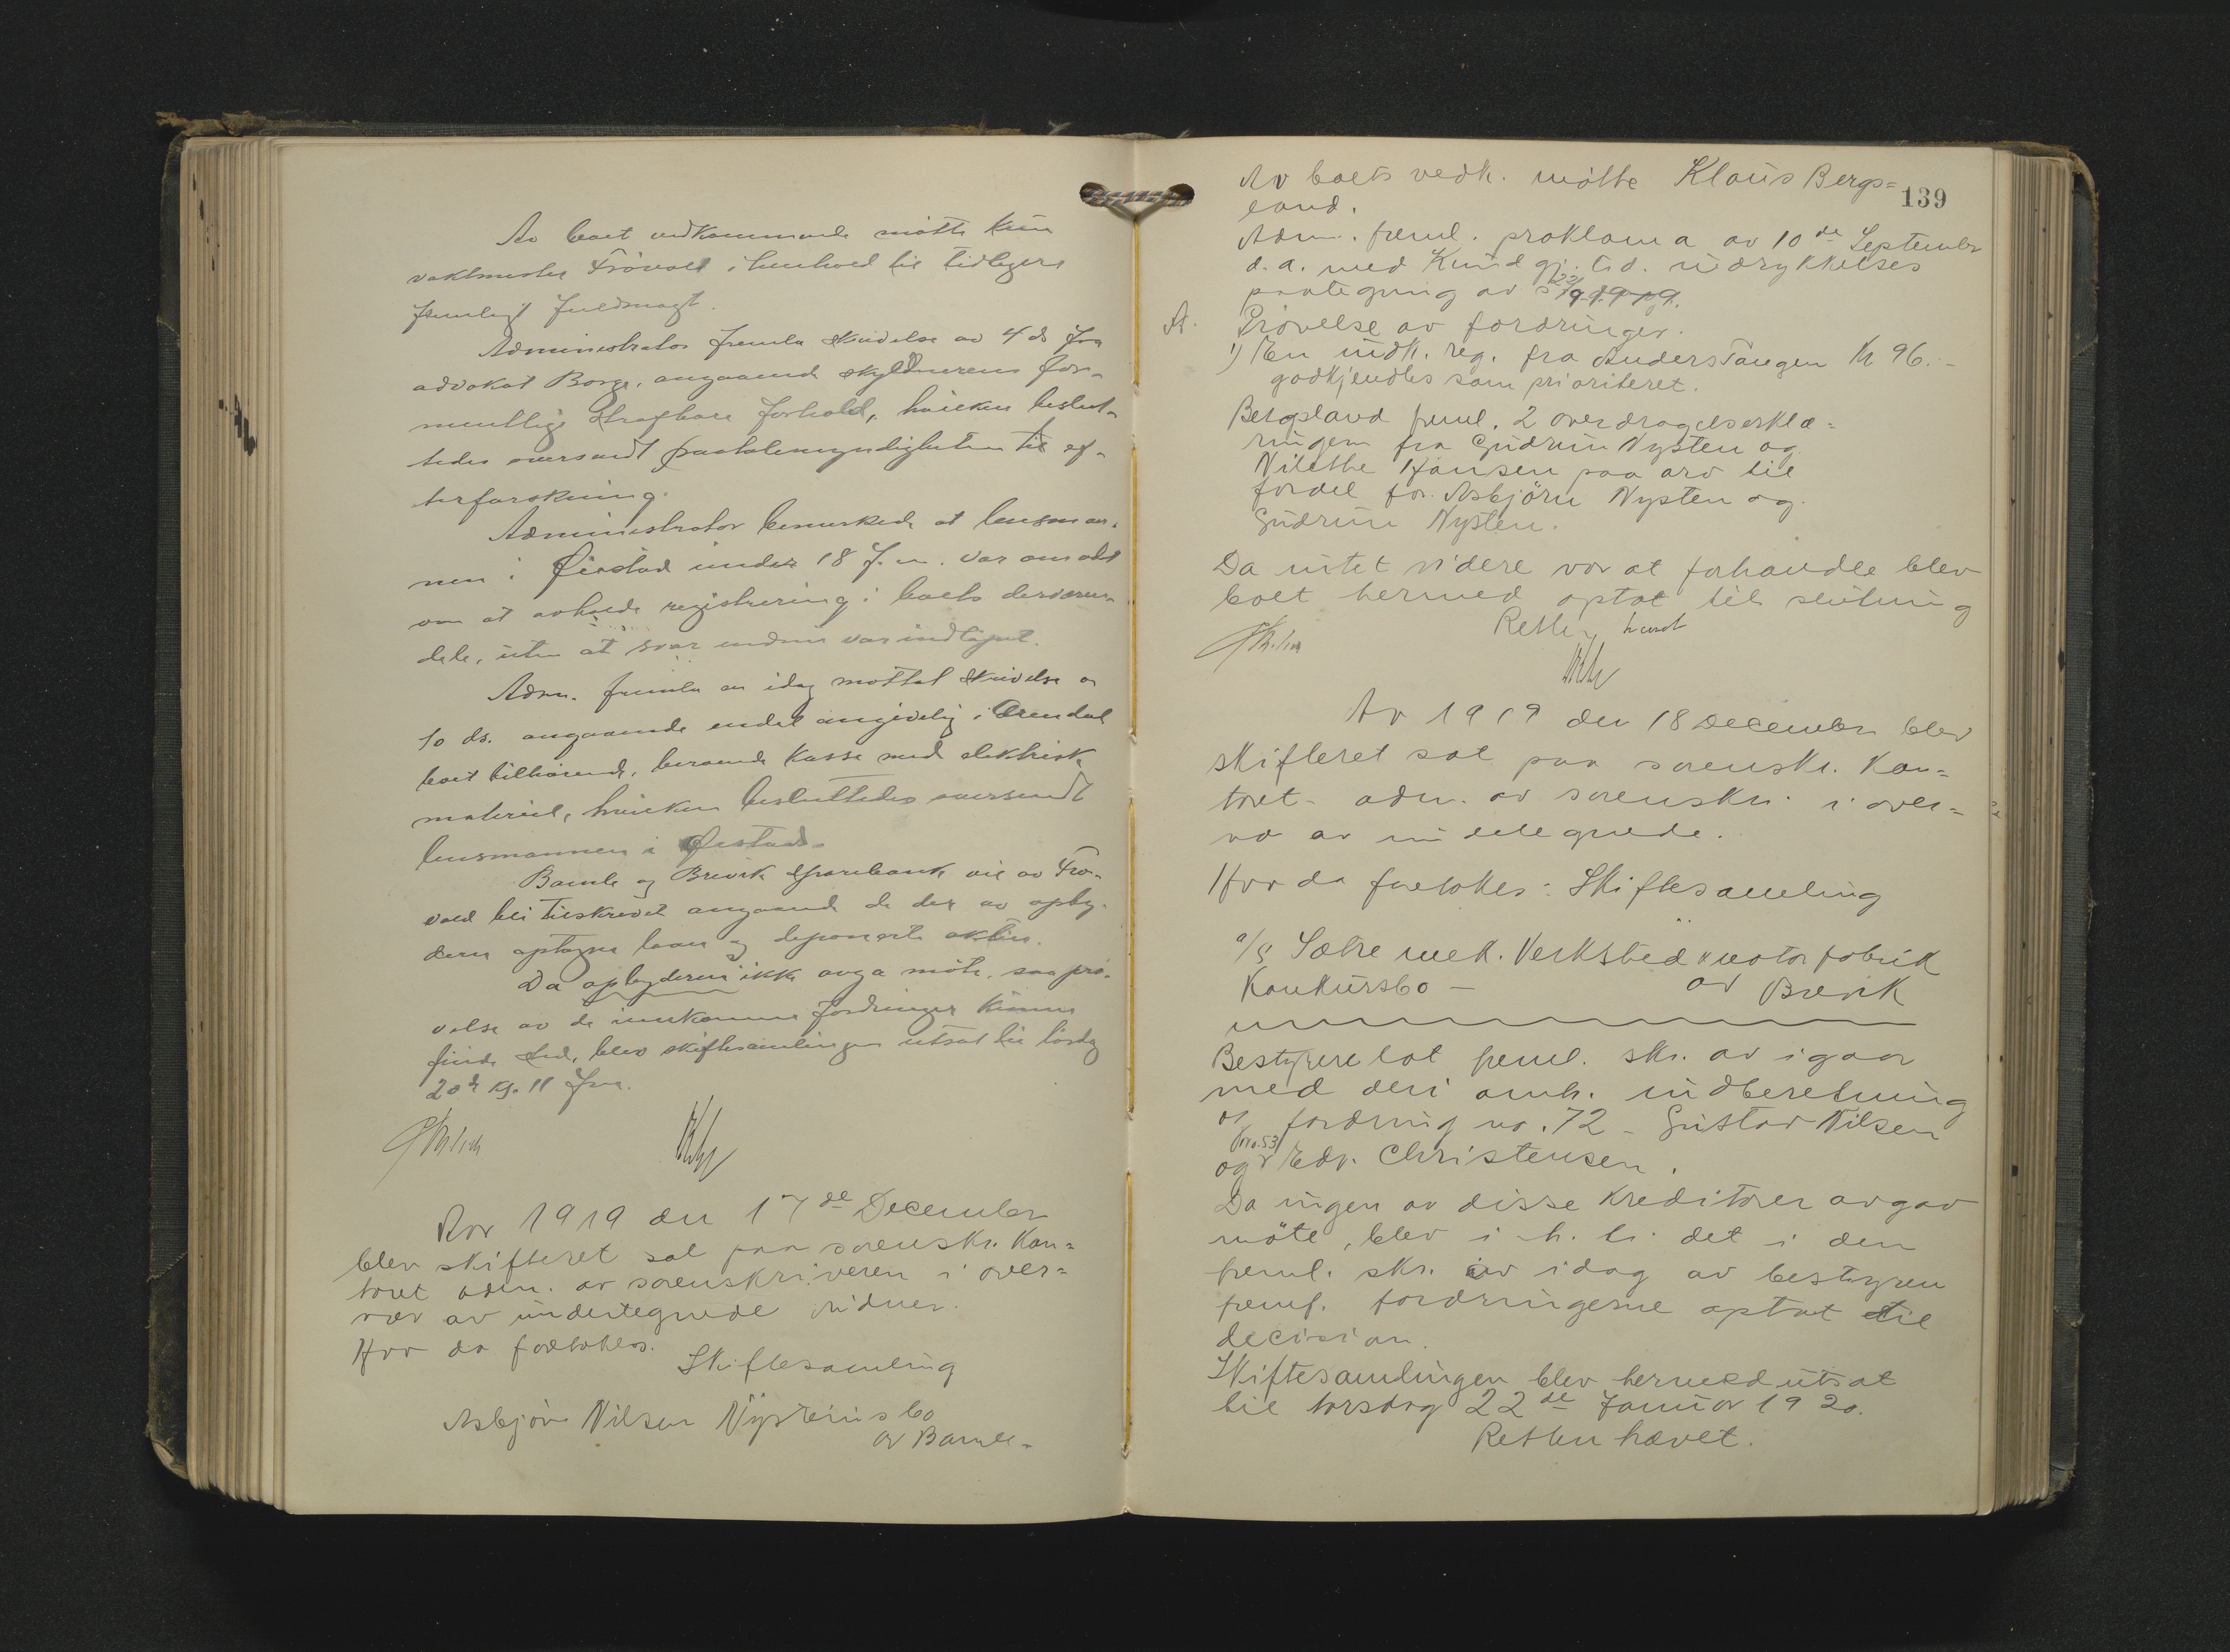 Av boet vedkommende møtte kun
vaktmester Frövold i henhold til tidligere
fremlagt fuldmagt.
Administrator fremla skrivelse av 4 ds fra
advokat Borge, angaaende skyldnerens for-
mentlige strafbare forhold, hvilken beslut-
tedes oversendt paatalemyndigheten til ef-
terforskning.
Administrator bemerkede at lensman-
nen i Øiestad under 18 f.m. var anmodet
om at avholde registrering i boets derværen-
dele, uten at svar endnu var indløpet.
Adm. fremla en idag mottat skrivelse av
10 ds. angaaende endel angivelig i Arendal
boet tilhørende, beroende kasse med elektrisk
materiel, hvilken besluttedes oversendt
lensmannen i Øiestad.
Bamle og Brevik Sparebank vil av Frö-
vold bli tilskrevet angaaende de der av opby-
deren optagne laan og deponerte aktier.
Da opbyderen ikke avga møte, saa prö-
velse av de innkomne fordringer kunne
finde sted, blev skiftesamlingen utsat til lørdag
20de kl. 11 fm.
Aar 1919 den 17de December
blev skifteret sat paa sorenskr. Kon=
toret adm. av sorenskriveren i over=
vær av undertegnede vidner.
Hvor da foretokes.
Skiftesamling
Asbjørn Nilsen Nystens bo
av Bamle-
139
Av boets vedk. mötte Klaus Bergs=
land.
Adm. freml. proklama av 10de September
d.a. med Kundgj. tid. indrykkelses
paategning av 23/9 1919.
A. Prövelse av fordringer.
1) En indk. reg. fra Anders Tangen Kr 96.-
godkjendtes som prioriteret.
Bergsland freml. 2 overdragelseserklæ=
ringer fra Gudrun Nysten og
Hansen paa arv til
fordel for Asbjörn Nysten og
Gudrun Nysten.
Da intet videre var at forhandle blev
boet hermed optat til slutning
Retten hævet
Aar 1919 den 18 December blev
skifteret sat paa sorenskr. Kon=
toret - adm. av sorenskr. i over=
vær av undetegnede.
Hvor da foretokes: Skiftesamling
a/s Sætre mek. Verksted & motorfabrik
Konkursbo - av Brevik
Bestyreren lot freml. skr. av igaar
med deri omh. indberetning
av fordring no. 72 - Gustav Nilsen
og no 53 Edv. Christensen.
Da ingen av disse Kreditorer avgav
möte, blev i h. t. det i den
freml. skr. av idag av bestyren
fremf. fordringerne optat til
decision.
Skiftesamlingen blev hermed utsat
til torsdag 22de Januar 1920.
Retten hævet.